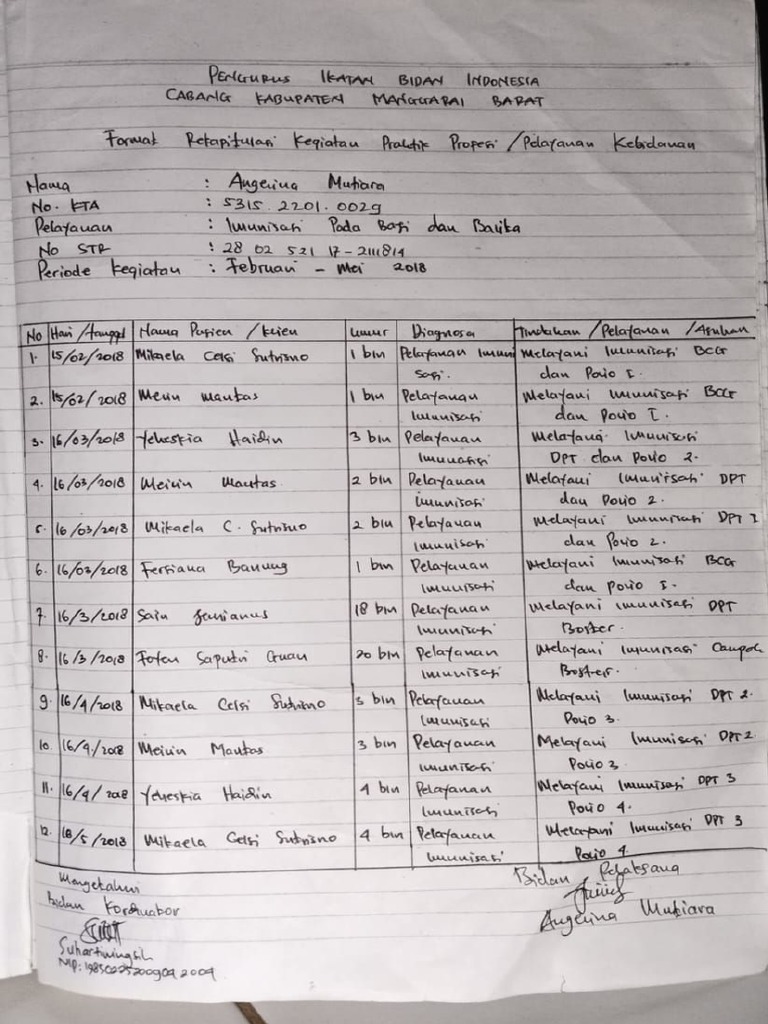 PENGURUS IKATAN BIDAN INDONESIA
CABANG KABUPATEN MANGGARAI BARAT
Format Rekapitulasi Kegiatan Praktik Profesi / Pelayanan Kebidanan
Nama : Angerina Mutiara
No. KTA : 5315.2201.0029
Pelayanan : Imunisasi Pada Bayi dan Balita
No STR : 28 02 521 17-2111814
Periode Kegiatan : Februari - Mei 2018
No Hari / tanggal Nama Pasien / Klien Umur Diagnosa Tindakan / Pelayanan / Asuhan
1. 15/02/2018 Mikaela Celsi Sutrisno 1 bln Pelayanan Imuni Melayani Imunisasi BCG
sasi. dan Polio I.
2. 15/02/2018 Meiin Mantas 1 bln Pelayanan Melayani Imunisasi BCG
Imunisasi dan Polio I.
3. 16/03/2018 Yeheskia Haidin 3 bln Pelayanan Melayani Imunisasi
Imunasisi DPT dan Polio 2.
4. 16/03/2018 Meivin Mantas 2 bln Pelayanan Melayani Imunisasi DPT
imunisasi dan Polio 2.
5. 16/03/2018 Mikaela C. Sutrisno 2 bln Pelayanan Melayani Imunisasi DPT I
imunisasi dan Polio 2.
6. 16/03/2018 Fersiana Banung 1 bln Pelayanan Melayani Imunisasi BCG
imunisasi dan Polio I.
7. 16/3/2018 Sain Janianus 18 bln Pelayanan Melayani Imunisasi DPT
Imunisasi Boster.
8. 16/3/2018 Saputri 20 bln Pelayanan Melayani Imunisasi Campak
imunisasi Boster.
9. 16/4/2018 Mikaela Celsi Sutrisno 3 bln Pelayanan Melayani Imunisasi DPT 2.
Imunisasi Polio 3.
10. 16/4/2018 Meivin Mantas 3 bln Pelayanan Melayani Imunisasi DPT 2
imunisasi Polio 3.
11. 16/4/2018 Yeheskia Haidin 4 bln Pelayanan Melayani Imunisasi DPT 3
imunisasi Polio 4.
12. 18/5/2018 Mikaela Celsi Sutrisno 4 bln Pelayanan Melayani Imunisasi DPT 3
imunisasi Polio 4
Mengetahui Bidan Pelaksana
Bidan Kordinator
Angerina Mutiara
Suhartiningsih